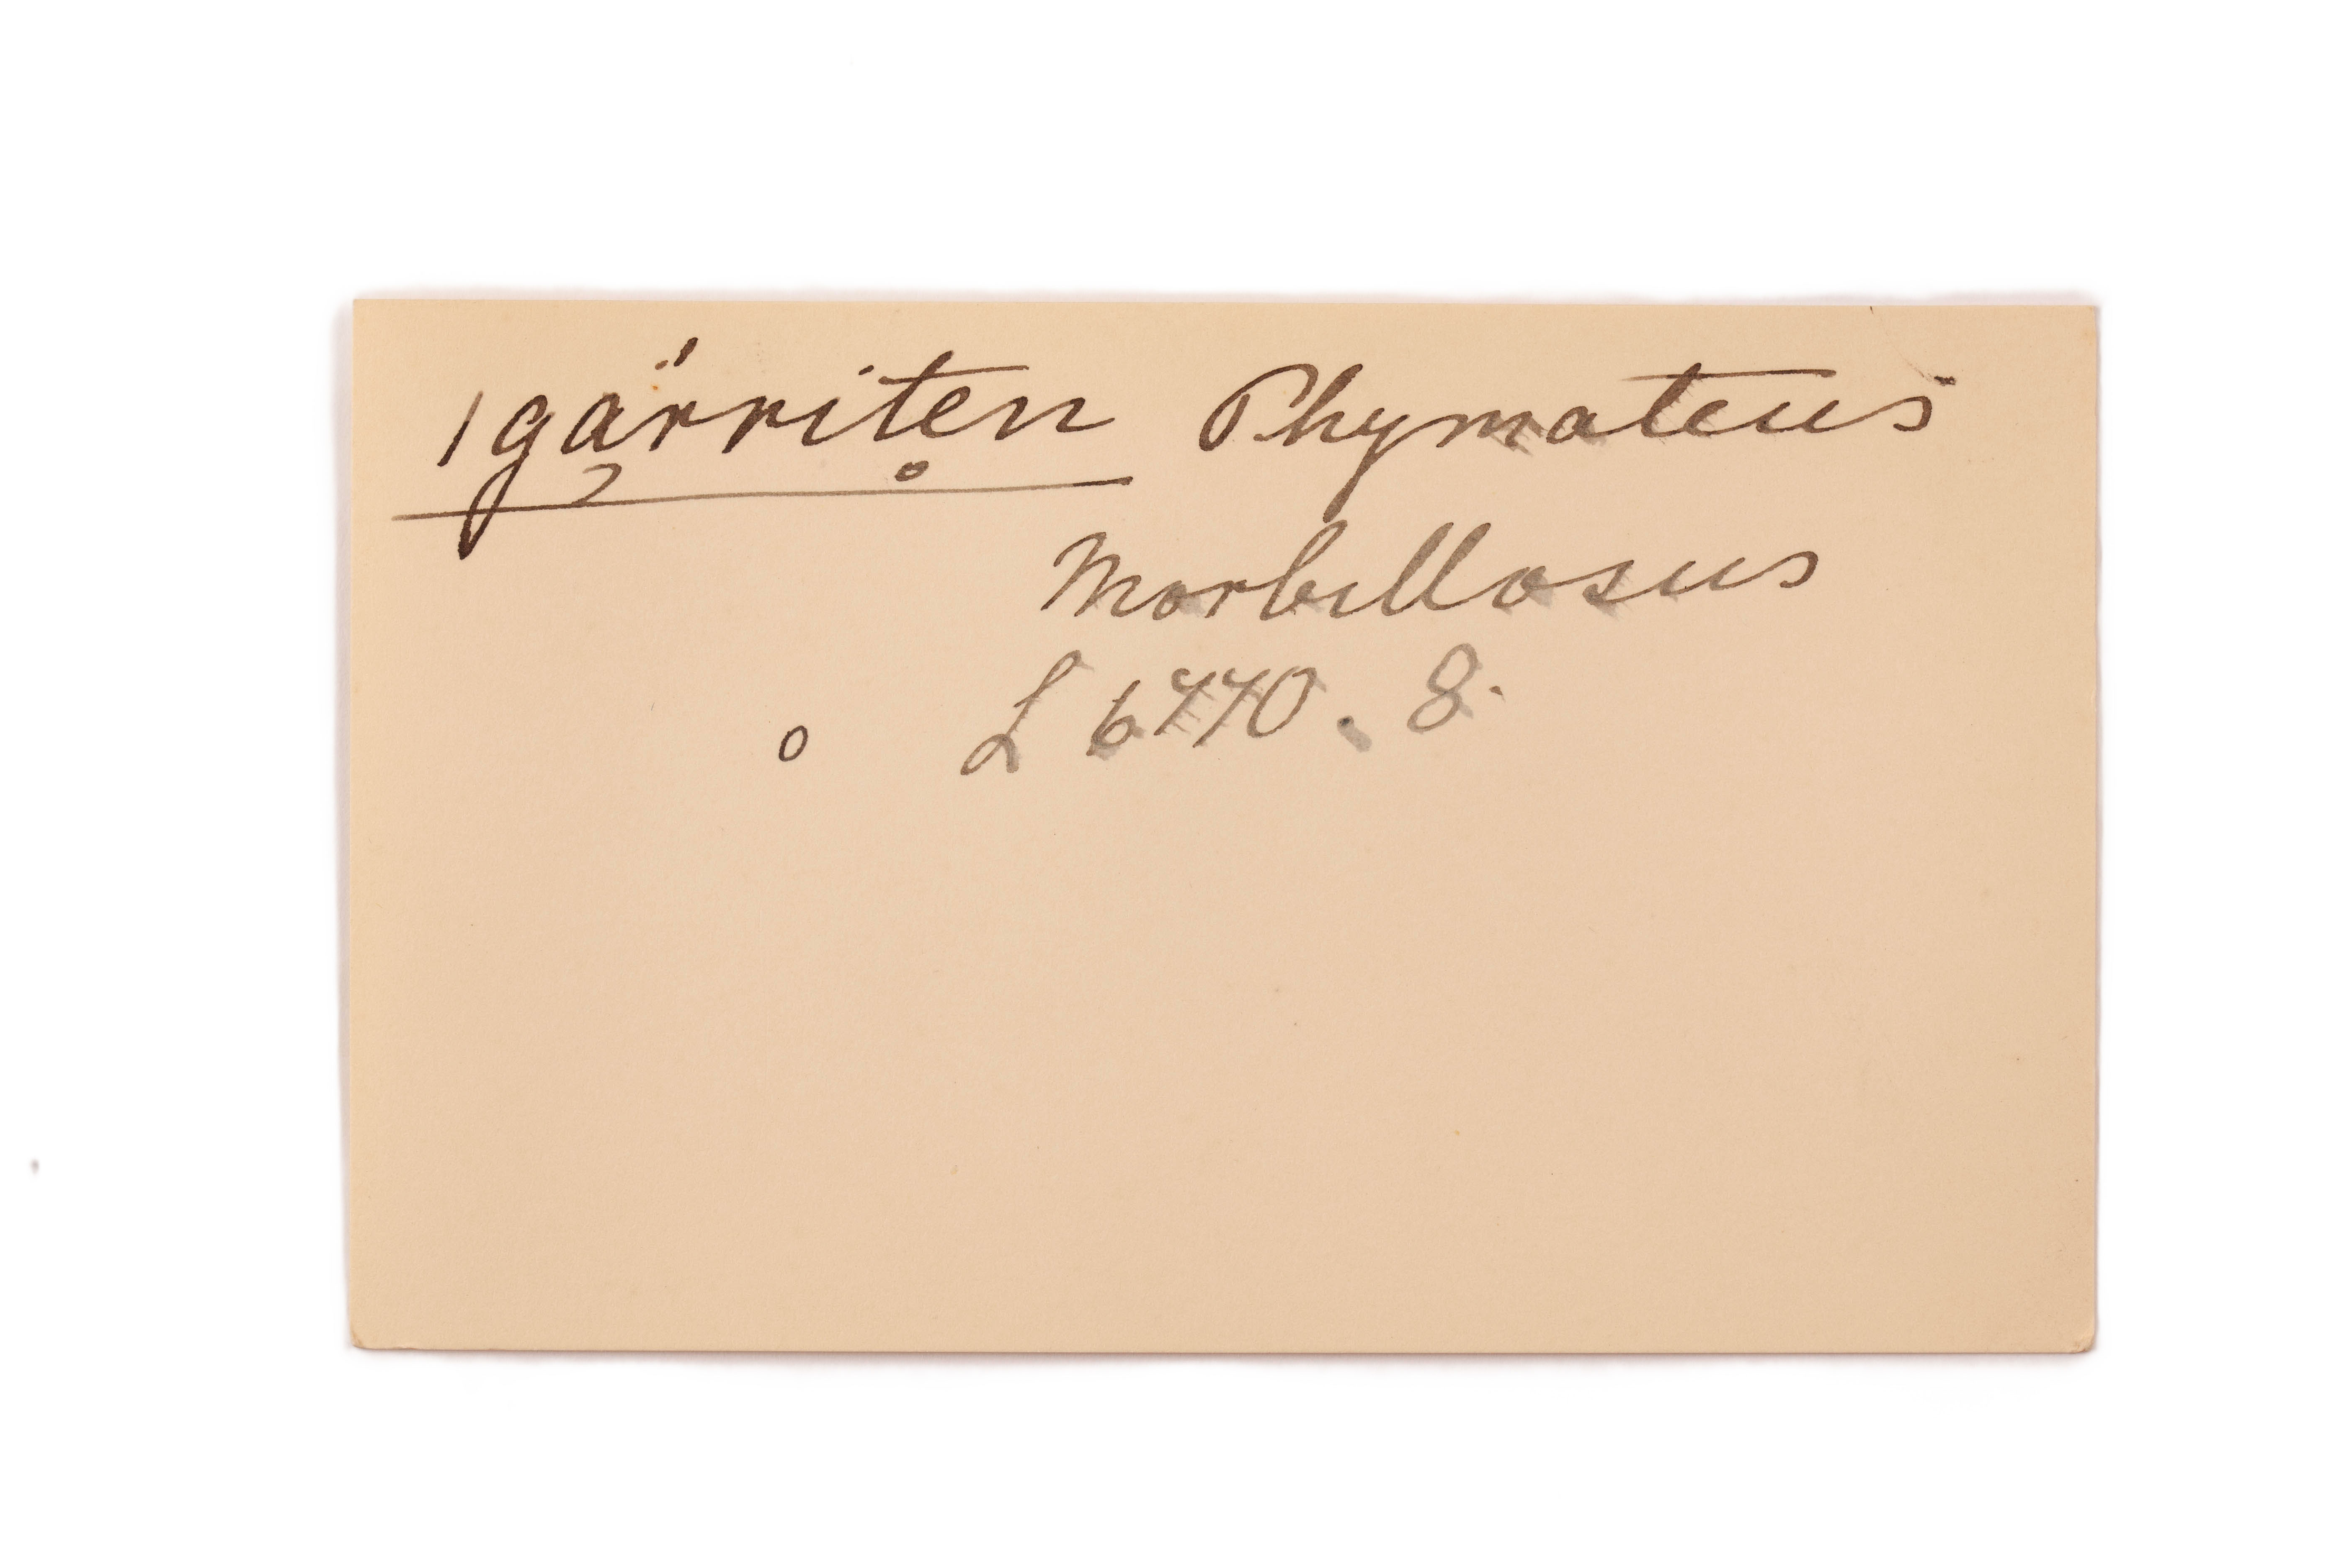 /gärriten Phymateus
Morbillosus
o L 6770. 8.